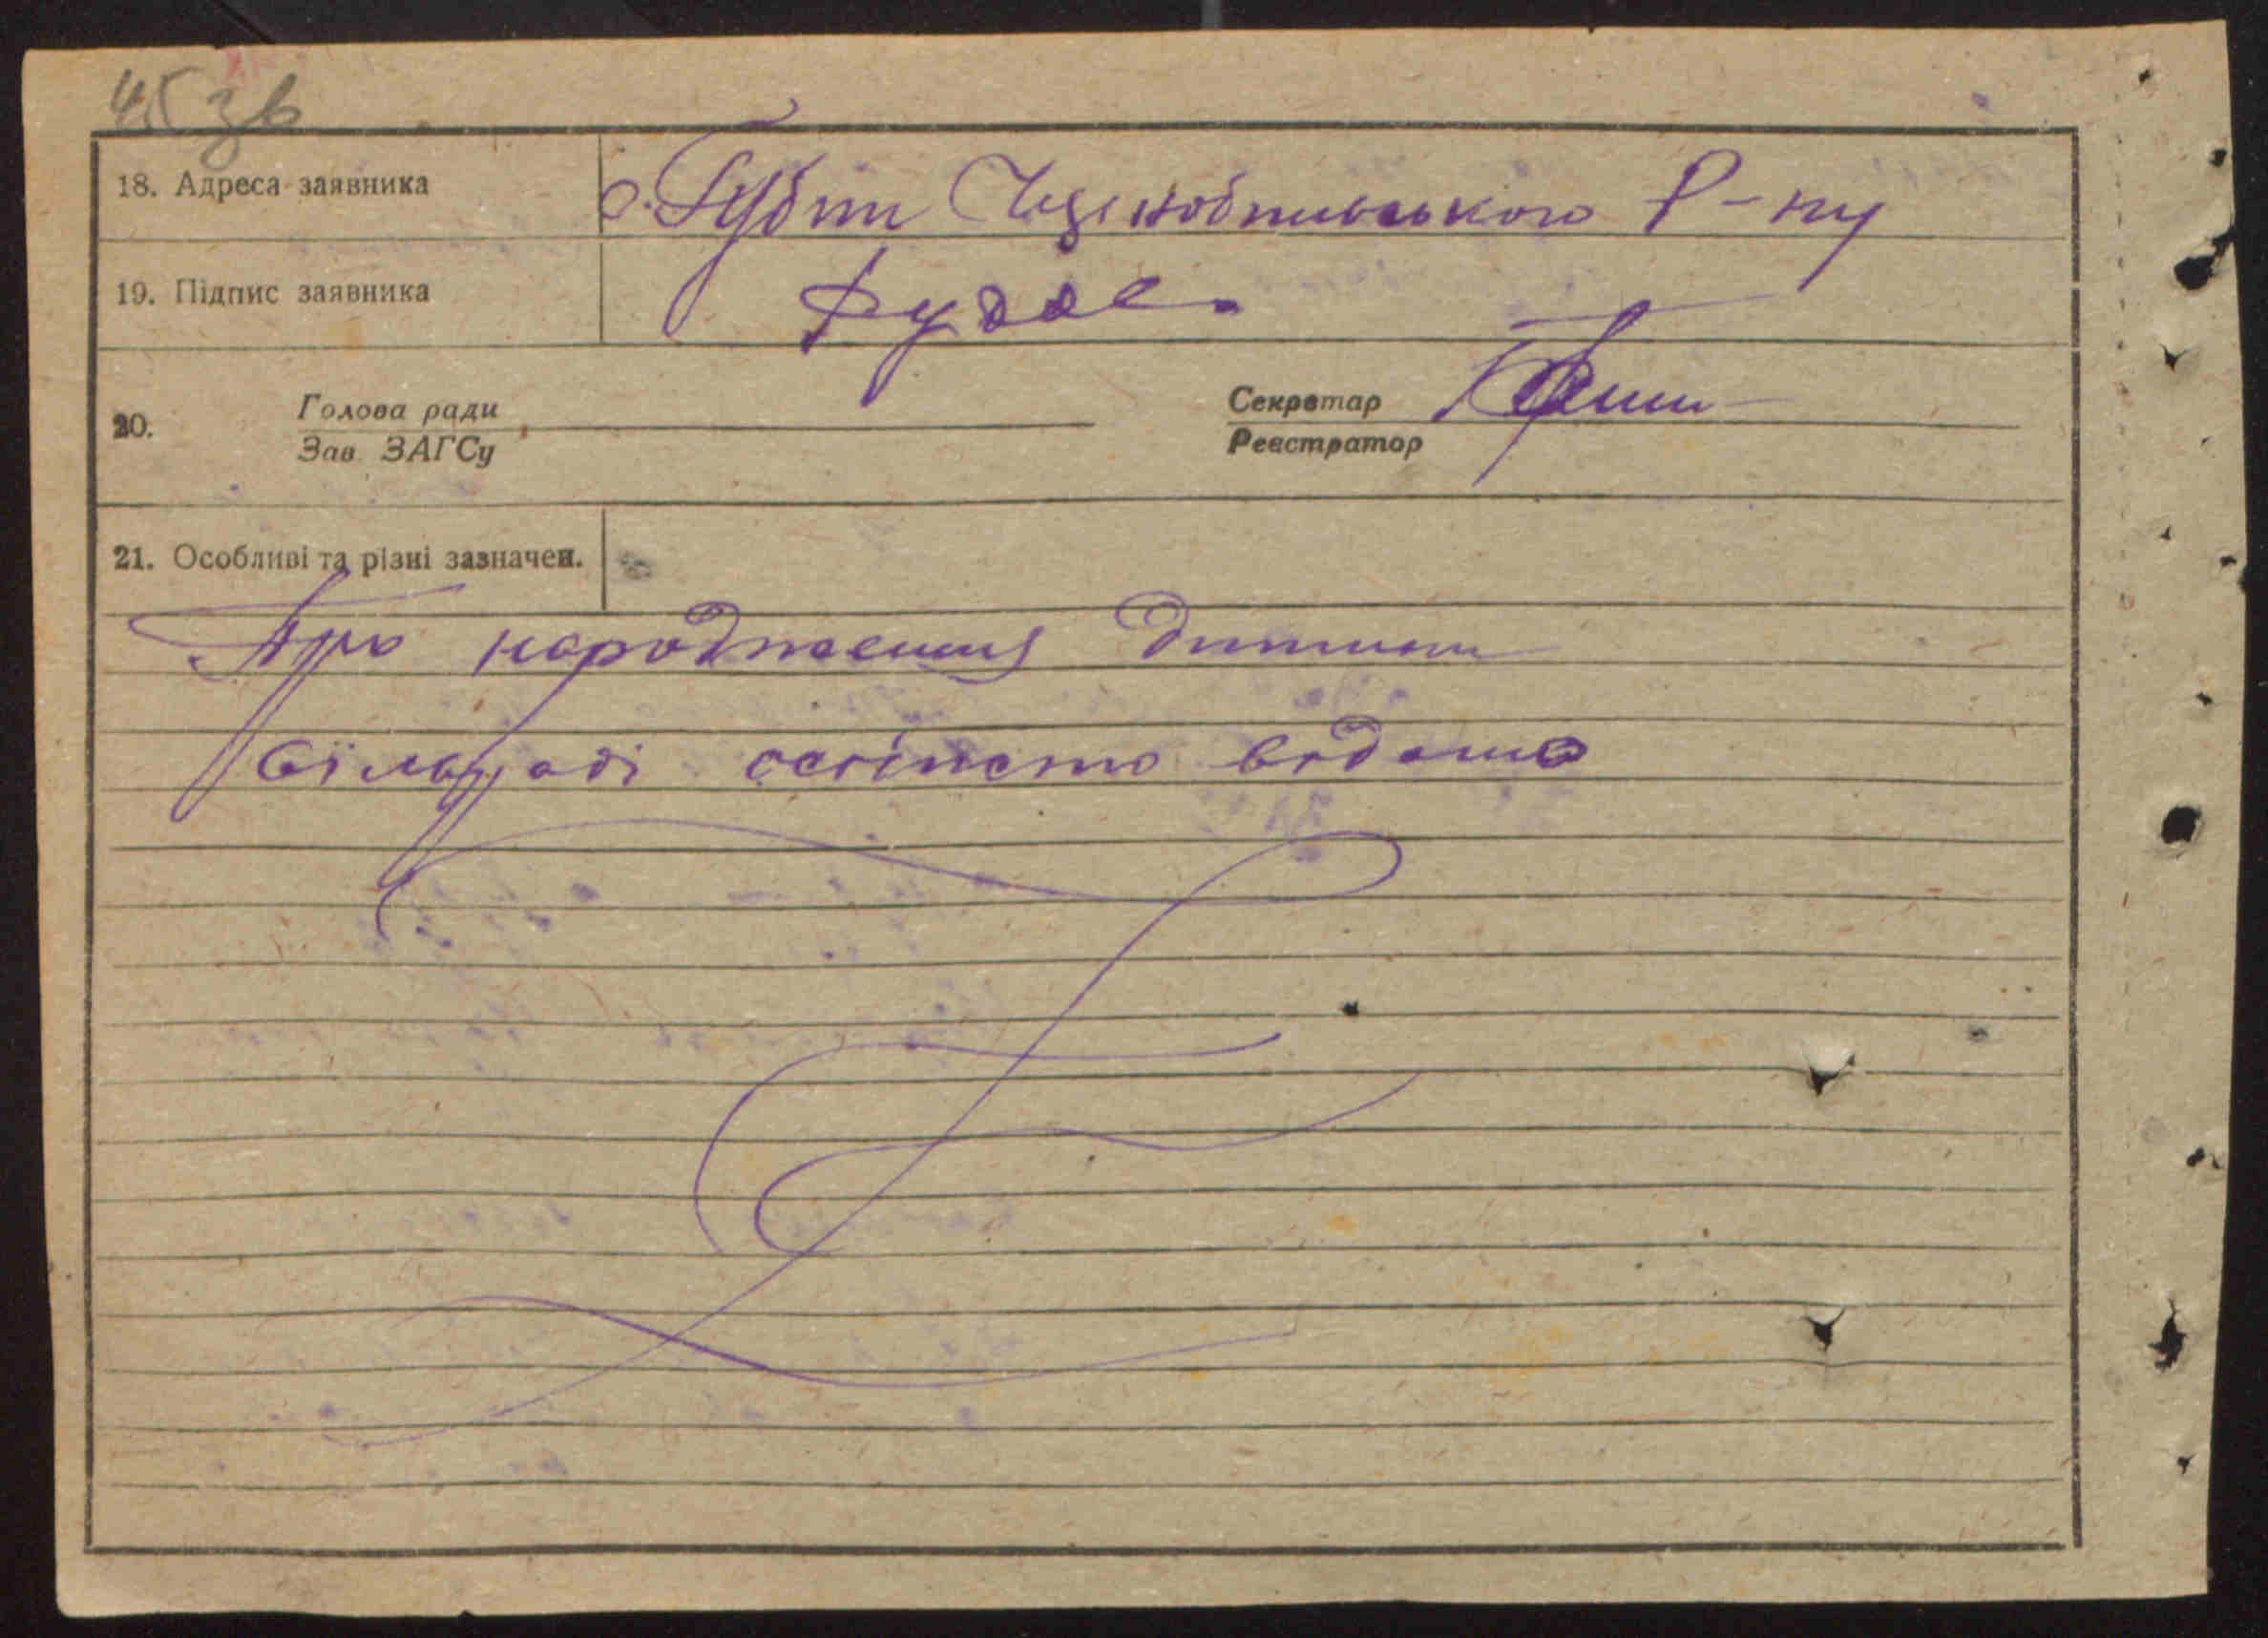 45 зв
18. Адреса заявника с. Губин Р-ну
19. Підпис заявника
20. Голова ради Секретар
Зав. ЗАГСу Реєстратор
21. Особливі та різні зазначен.
Про народження дитини
сільраді особисто відомо